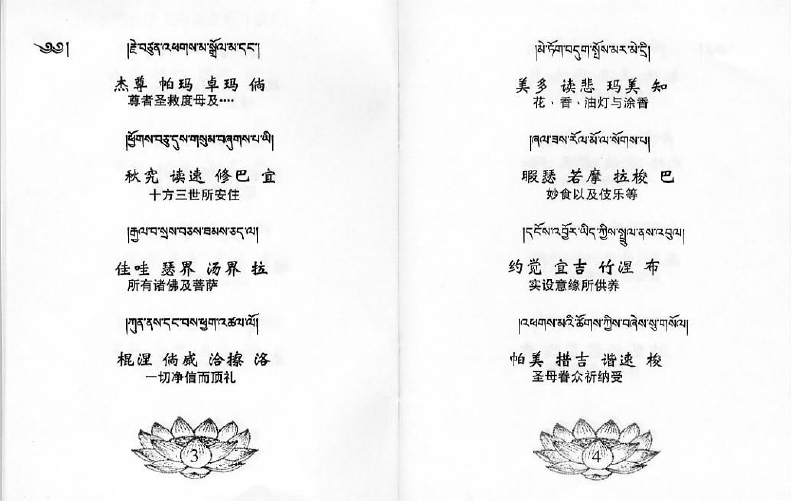 ༄༅། །རྗེ་བཙུན་འཕགས་མ་སྒྲོལ་མ་དང་།
杰尊 帕玛 卓玛 倘
尊者圣救度母及····
།ཕྱོགས་བཅུ་དུས་གསུམ་བཞུགས་པ་ཡི།
秋究 读速 修巴 宜
十方三世所安住
།རྒྱལ་བ་སྲས་བཅས་ཐམས་ཅད་ལ།
佳哇 瑟界 汤界 拉
所有诸佛及菩萨
།ཀུན་ནས་དང་བས་ཕྱག་འཚལ་ལོ།
棍涅 倘威 洽擦 洛
一切净信而顶礼
3
།མེ་ཏོག་བདུག་སྤོས་མར་མེ་དྲི།
美多 读悲 玛美 知
花、香、油灯与涂香
།ཞལ་ཟས་རོལ་མོ་ལ་སོགས་པ།
暇瑟 若摩 拉梭 巴
妙食以及伎乐等
།དངོས་འབྱོར་ཡིད་ཀྱིས་སྤྲུལ་ནས་འབུལ།
约觉 宜吉 竹涅 布
实设意缘所供养
།འཕགས་མའི་ཚོགས་ཀྱིས་བཞེས་སུ་གསོལ།
帕美 措吉 谐速 梭
圣母眷众祈纳受
4